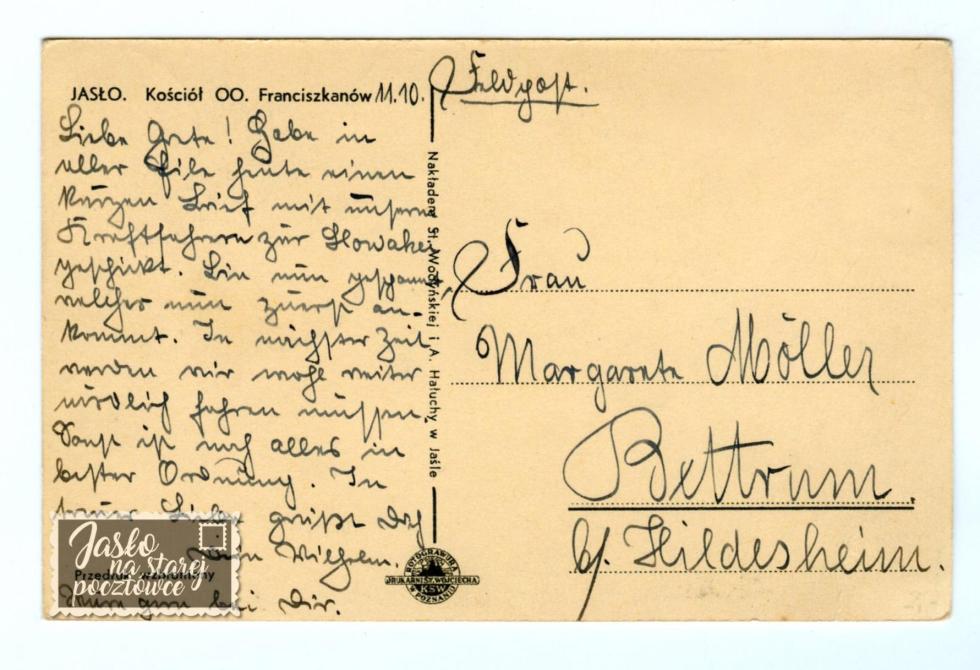 JASŁO. Kościół OO. Franciszkanów 11.10.
Liebe Grete! Habe in
aller Eile heute einen
kurzen Brief mit unseren
Kraftfahrern zur Slowakei
geschickt. Bin nun gespannt,
welcher nun zuerst an-
kommt. In nächster Zeit
werden wir wohl weiter
nördlich fahren müssen.
Sonst ist noch alles in
bester Ordnung. In
treuer Liebe grüßt Dich
Dein Wilhelm.
bei Dir.
Feldpost.
Frau
Margarete Möller
Bettrum
b/ Hildesheim.
Nakładem St. Wodyńskiej i A. Hałuchy w Jaśle
FOTOGRAWIURA
DRUKARNI ŚW. WOJCIECHA
KSW
W POZNANIU
Jasło
na starej
pocztówce
Przedruk wzbroniony